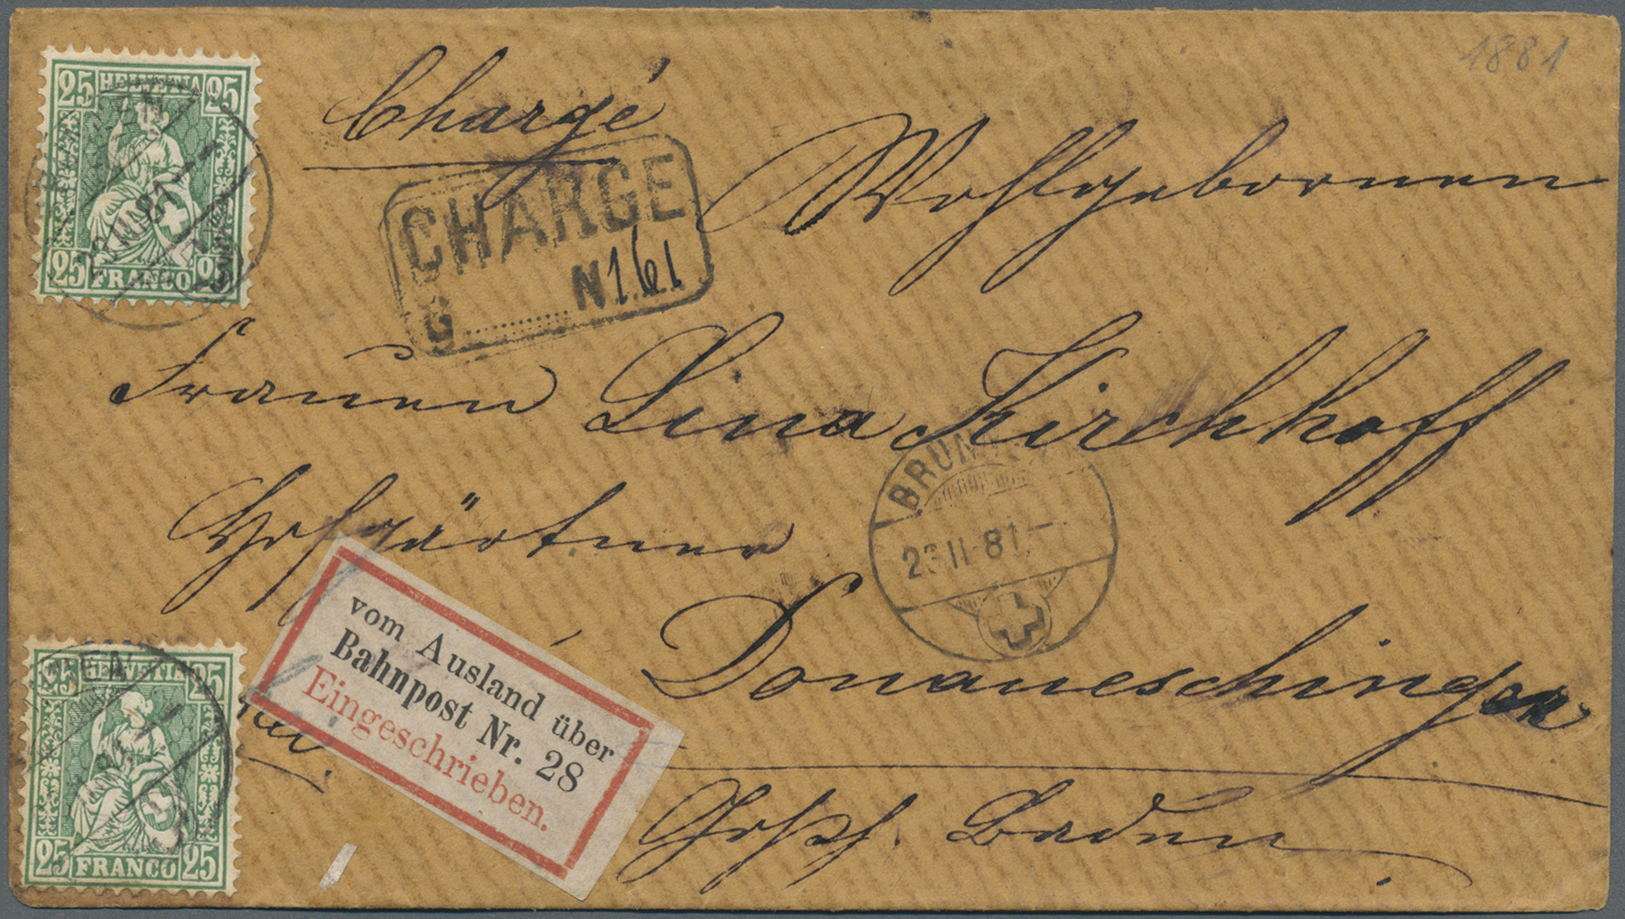 1881
25 HELVETIA 25
23 VII 81
25 FRANCO 25
Chargé
CHARGE
G......... N 161
Wohlgebornen
Frauen Lina Kirchhoff
Hofgärtner
BRUN
23 II 81
Donaueschingen
vom Ausland über
Bahnpost Nr. 28
Eingeschrieben.
frei.
25 HELVETIA 25
25 FRANCO 25
Baden